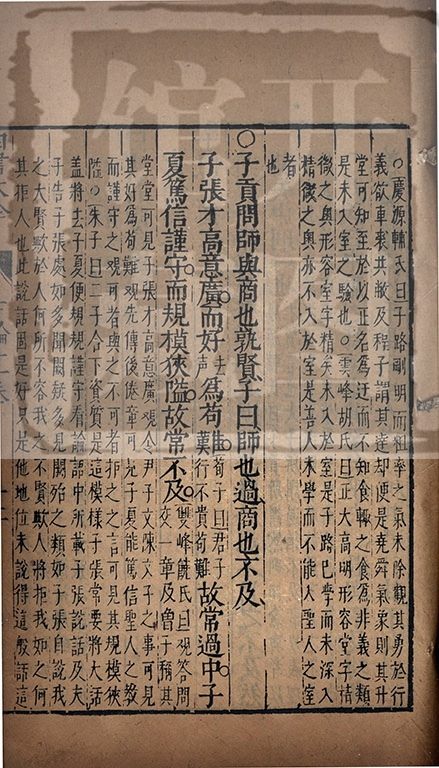 ○慶源輔氏曰子路剛明而粗率之氣未除觀其勇於行
義欲車裘共敝及程子謂其達却便是堯舜氣象則其升
堂可知至於以正名為迂而不知食輒之食為非義之類
是未入室之驗也○雲峰胡氏曰正大高明形容堂字精
微之奧形容室字精矣未入於室是子路已學而未深入
精微之奧亦不入於室是善人未學而不能入聖人之室
者
也
○子貢問師與商也孰賢子曰師也過商也不及
子張才高意廣而好去聲為苟難荀子曰君子行不貴苟難故常過中子
夏篤信謹守而規模狹隘故常不及雙峰饒氏曰觀答問交一章及曾子稱其
堂堂可見子張才高意廣觀令尹子文陳文子之事可見
其好為苟難觀先傳後倦章可見子夏能篤信聖人之教
而謹守之觀可者與之不可者拒之之言可見其規模狹
隘○朱子曰二子合下資質是這模樣子張常要將大話
蓋將去子夏便規規謹守看論語中所載子張說話及夫
子告子張處如多聞闕疑多見闕殆之類如子張自說我
之大賢歟於人何所不容我之不賢歟人將拒我如之何
其拒人也此說話固是好只是他地位未說得這般話這